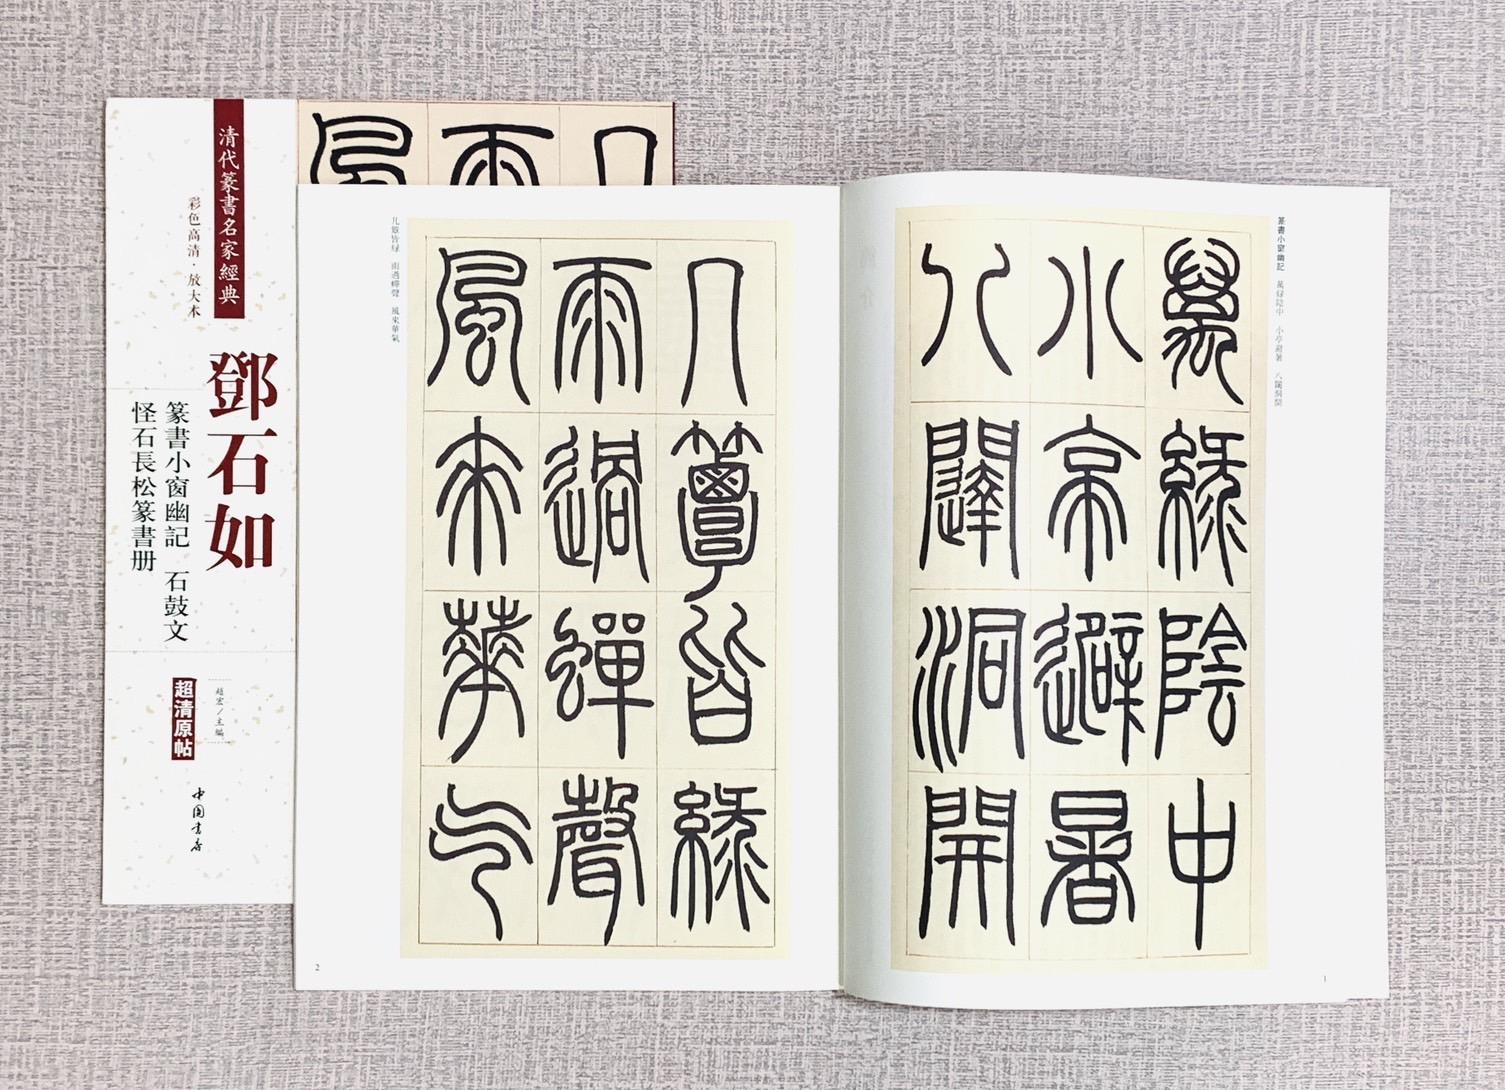 清代篆書名家經典
彩色高清·放大本
鄧石如
篆書小窗幽記 石鼓文
怪石長松篆書册
趙宏／主編
超清原帖
中国书店
几
雨
風
篆書小窗幽記 萬緑陰中 小亭避暑 八闥洞開
萬緑陰中
小亭避暑
八闥洞開
1
几簟皆緑
雨過蟬聲
風來華气
几簟皆緑 雨過蟬聲 風來華氣
2